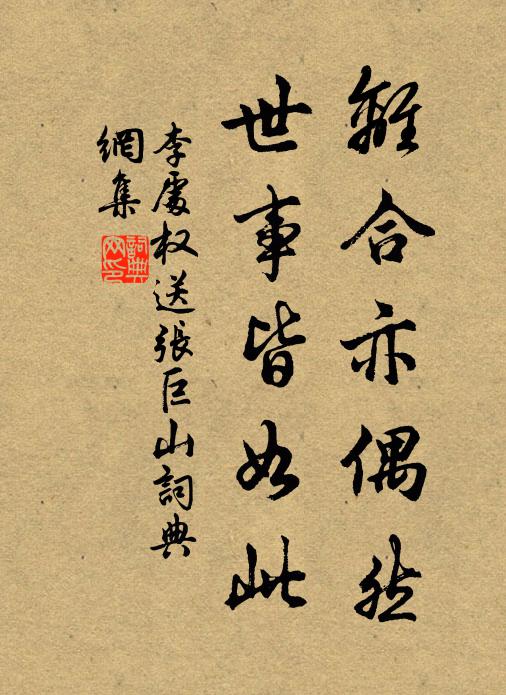 離合亦偶然
世事皆如此
李處权送張巨山詞典
網集
詞典
网印